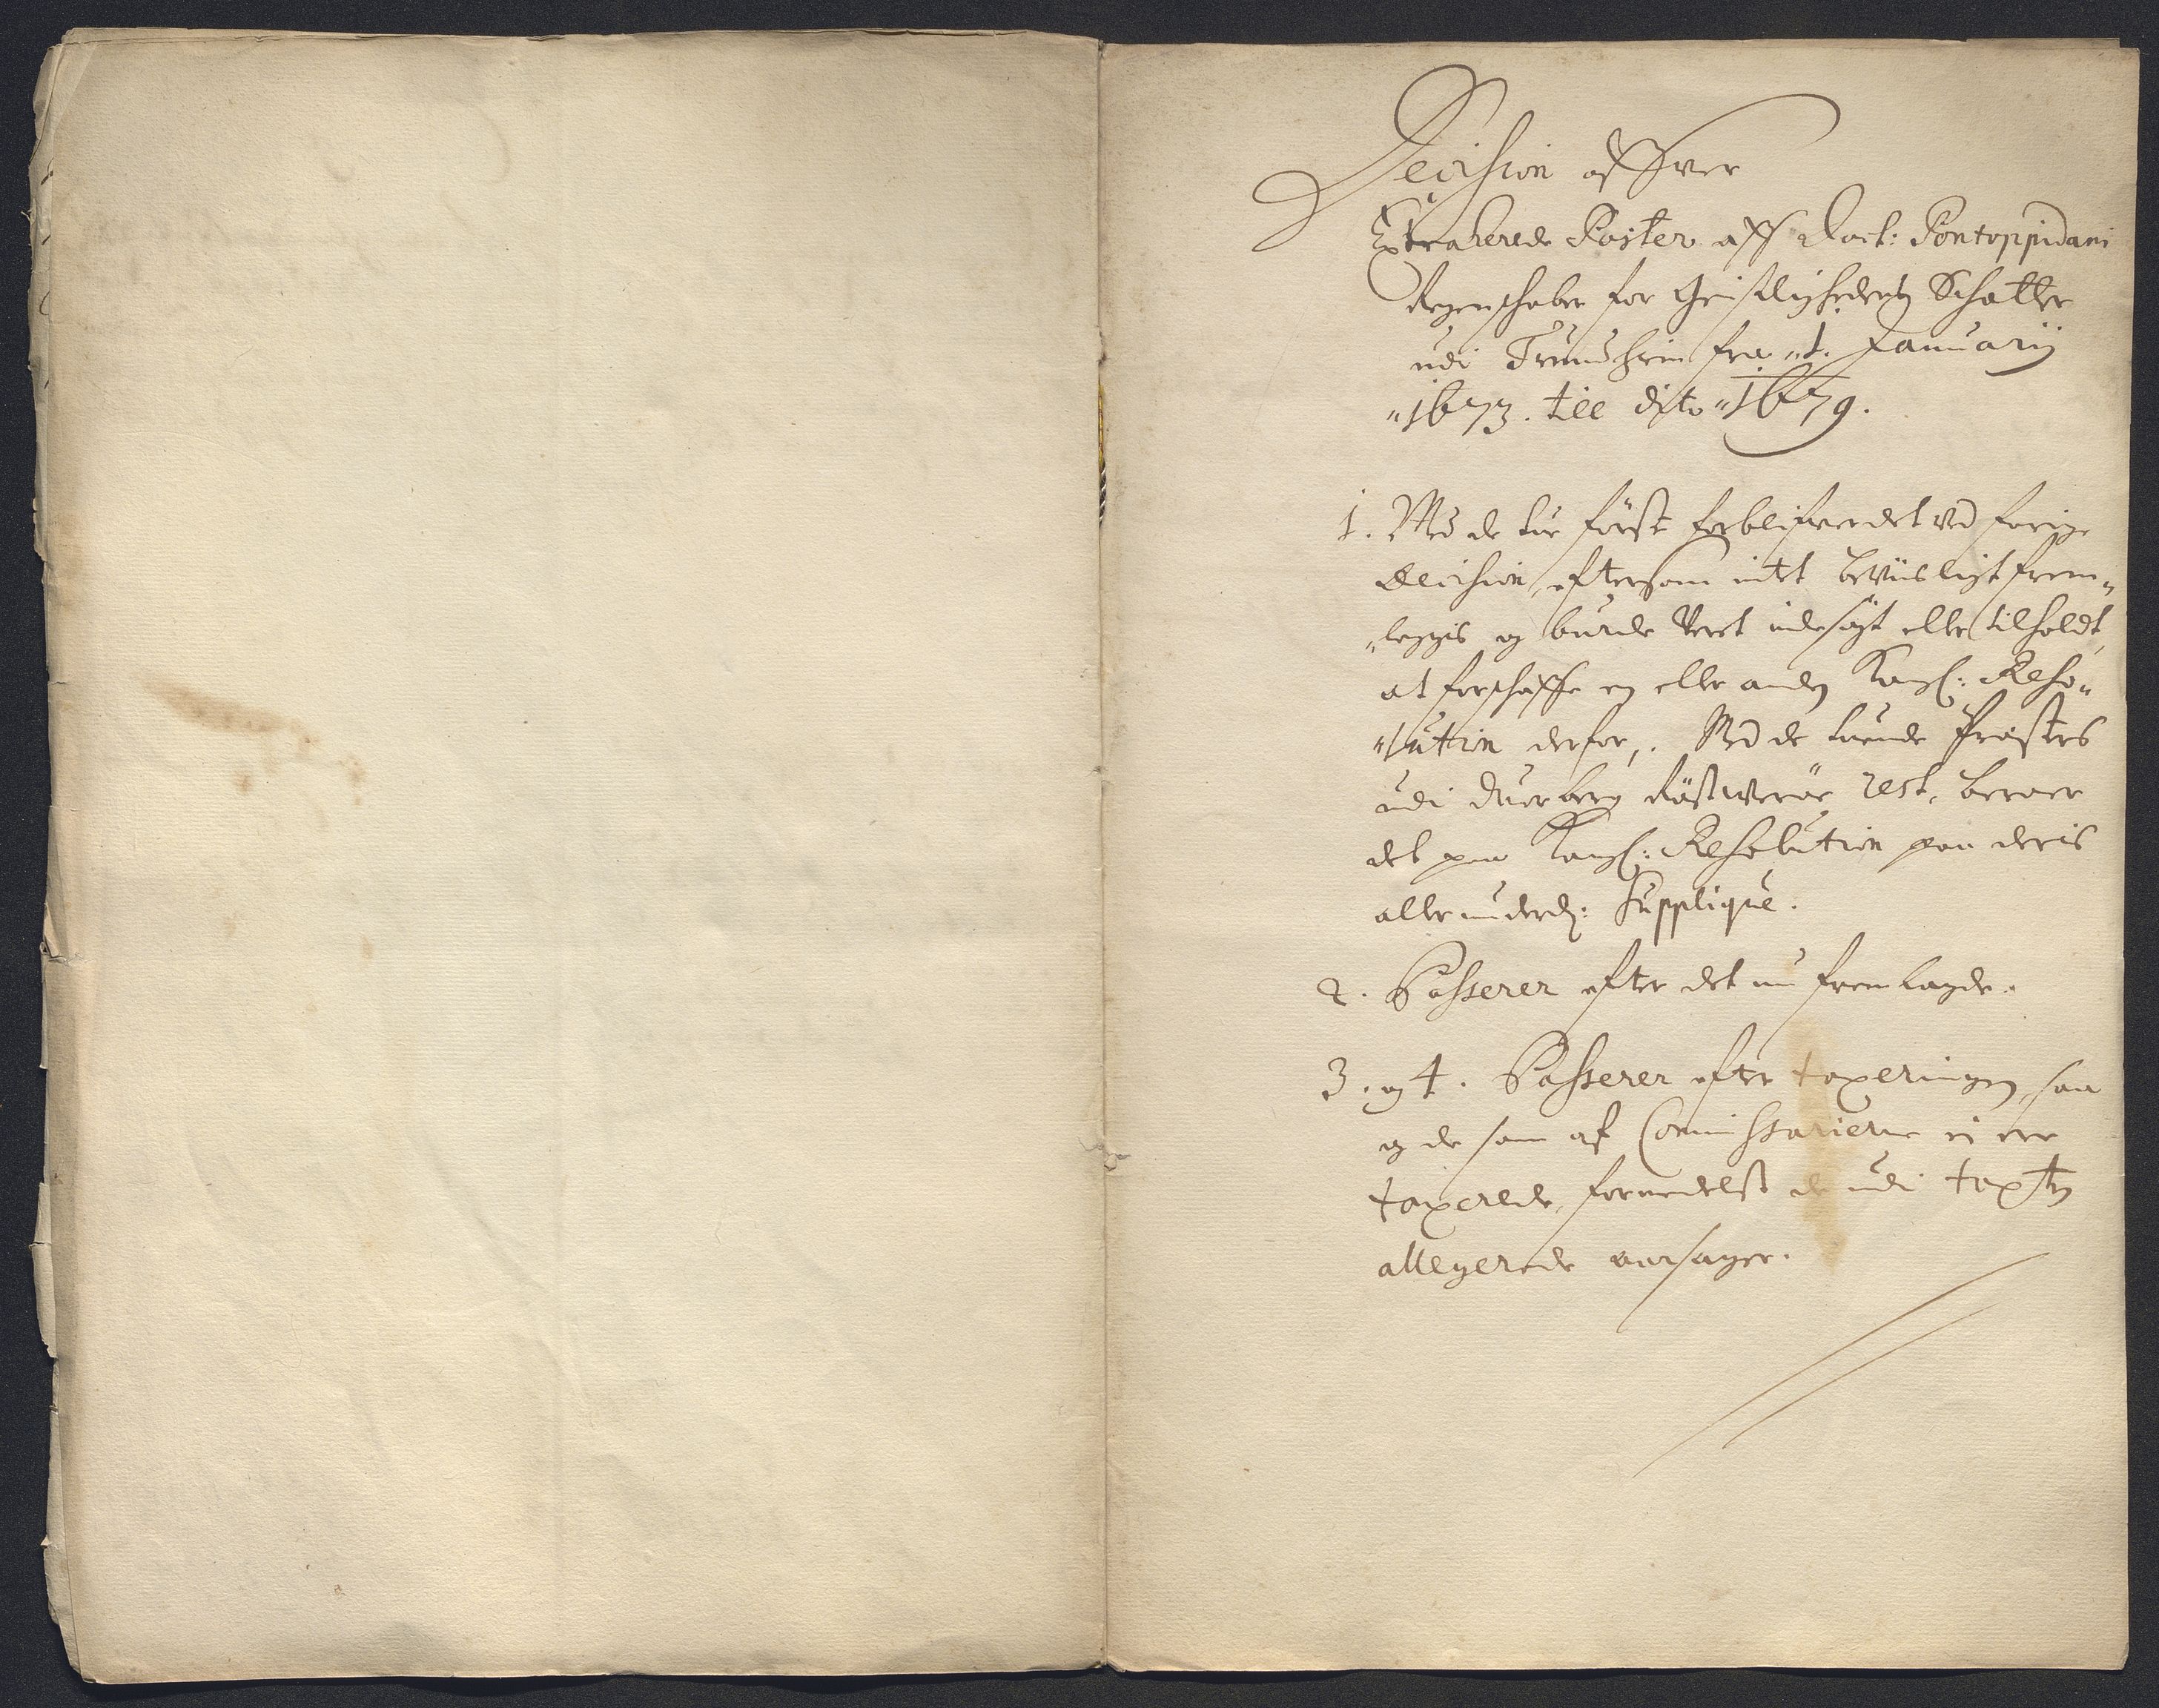 Decision offver
Extraherede Poster aff Doct: Pontoppidani
Regenschaber for Geistlighedens Schatter
udi Trundheim fra 1. Januarij
1673. till dito 1679.
1. Med de toe förste forblifver det ved forige
decision, eftersom intet beviisligt frem„
„leggis og burde veret indesögt eller tilholdt,
at forschaffe en eller anden Kongl: Reso„
„lution derfor,. Med de tuende Præsters
udi Röst Werøe rest, beroer
det paa Kongl: Resolution paa deris
allerunderd: Supplique.
2. Passerer efter det nu fremlagde.
3. og 4. Passerer efter taxeringen, saa
og de som af Commissarierne ei ere
taxerede, formedelst de udi texten
allegerede aarsager.